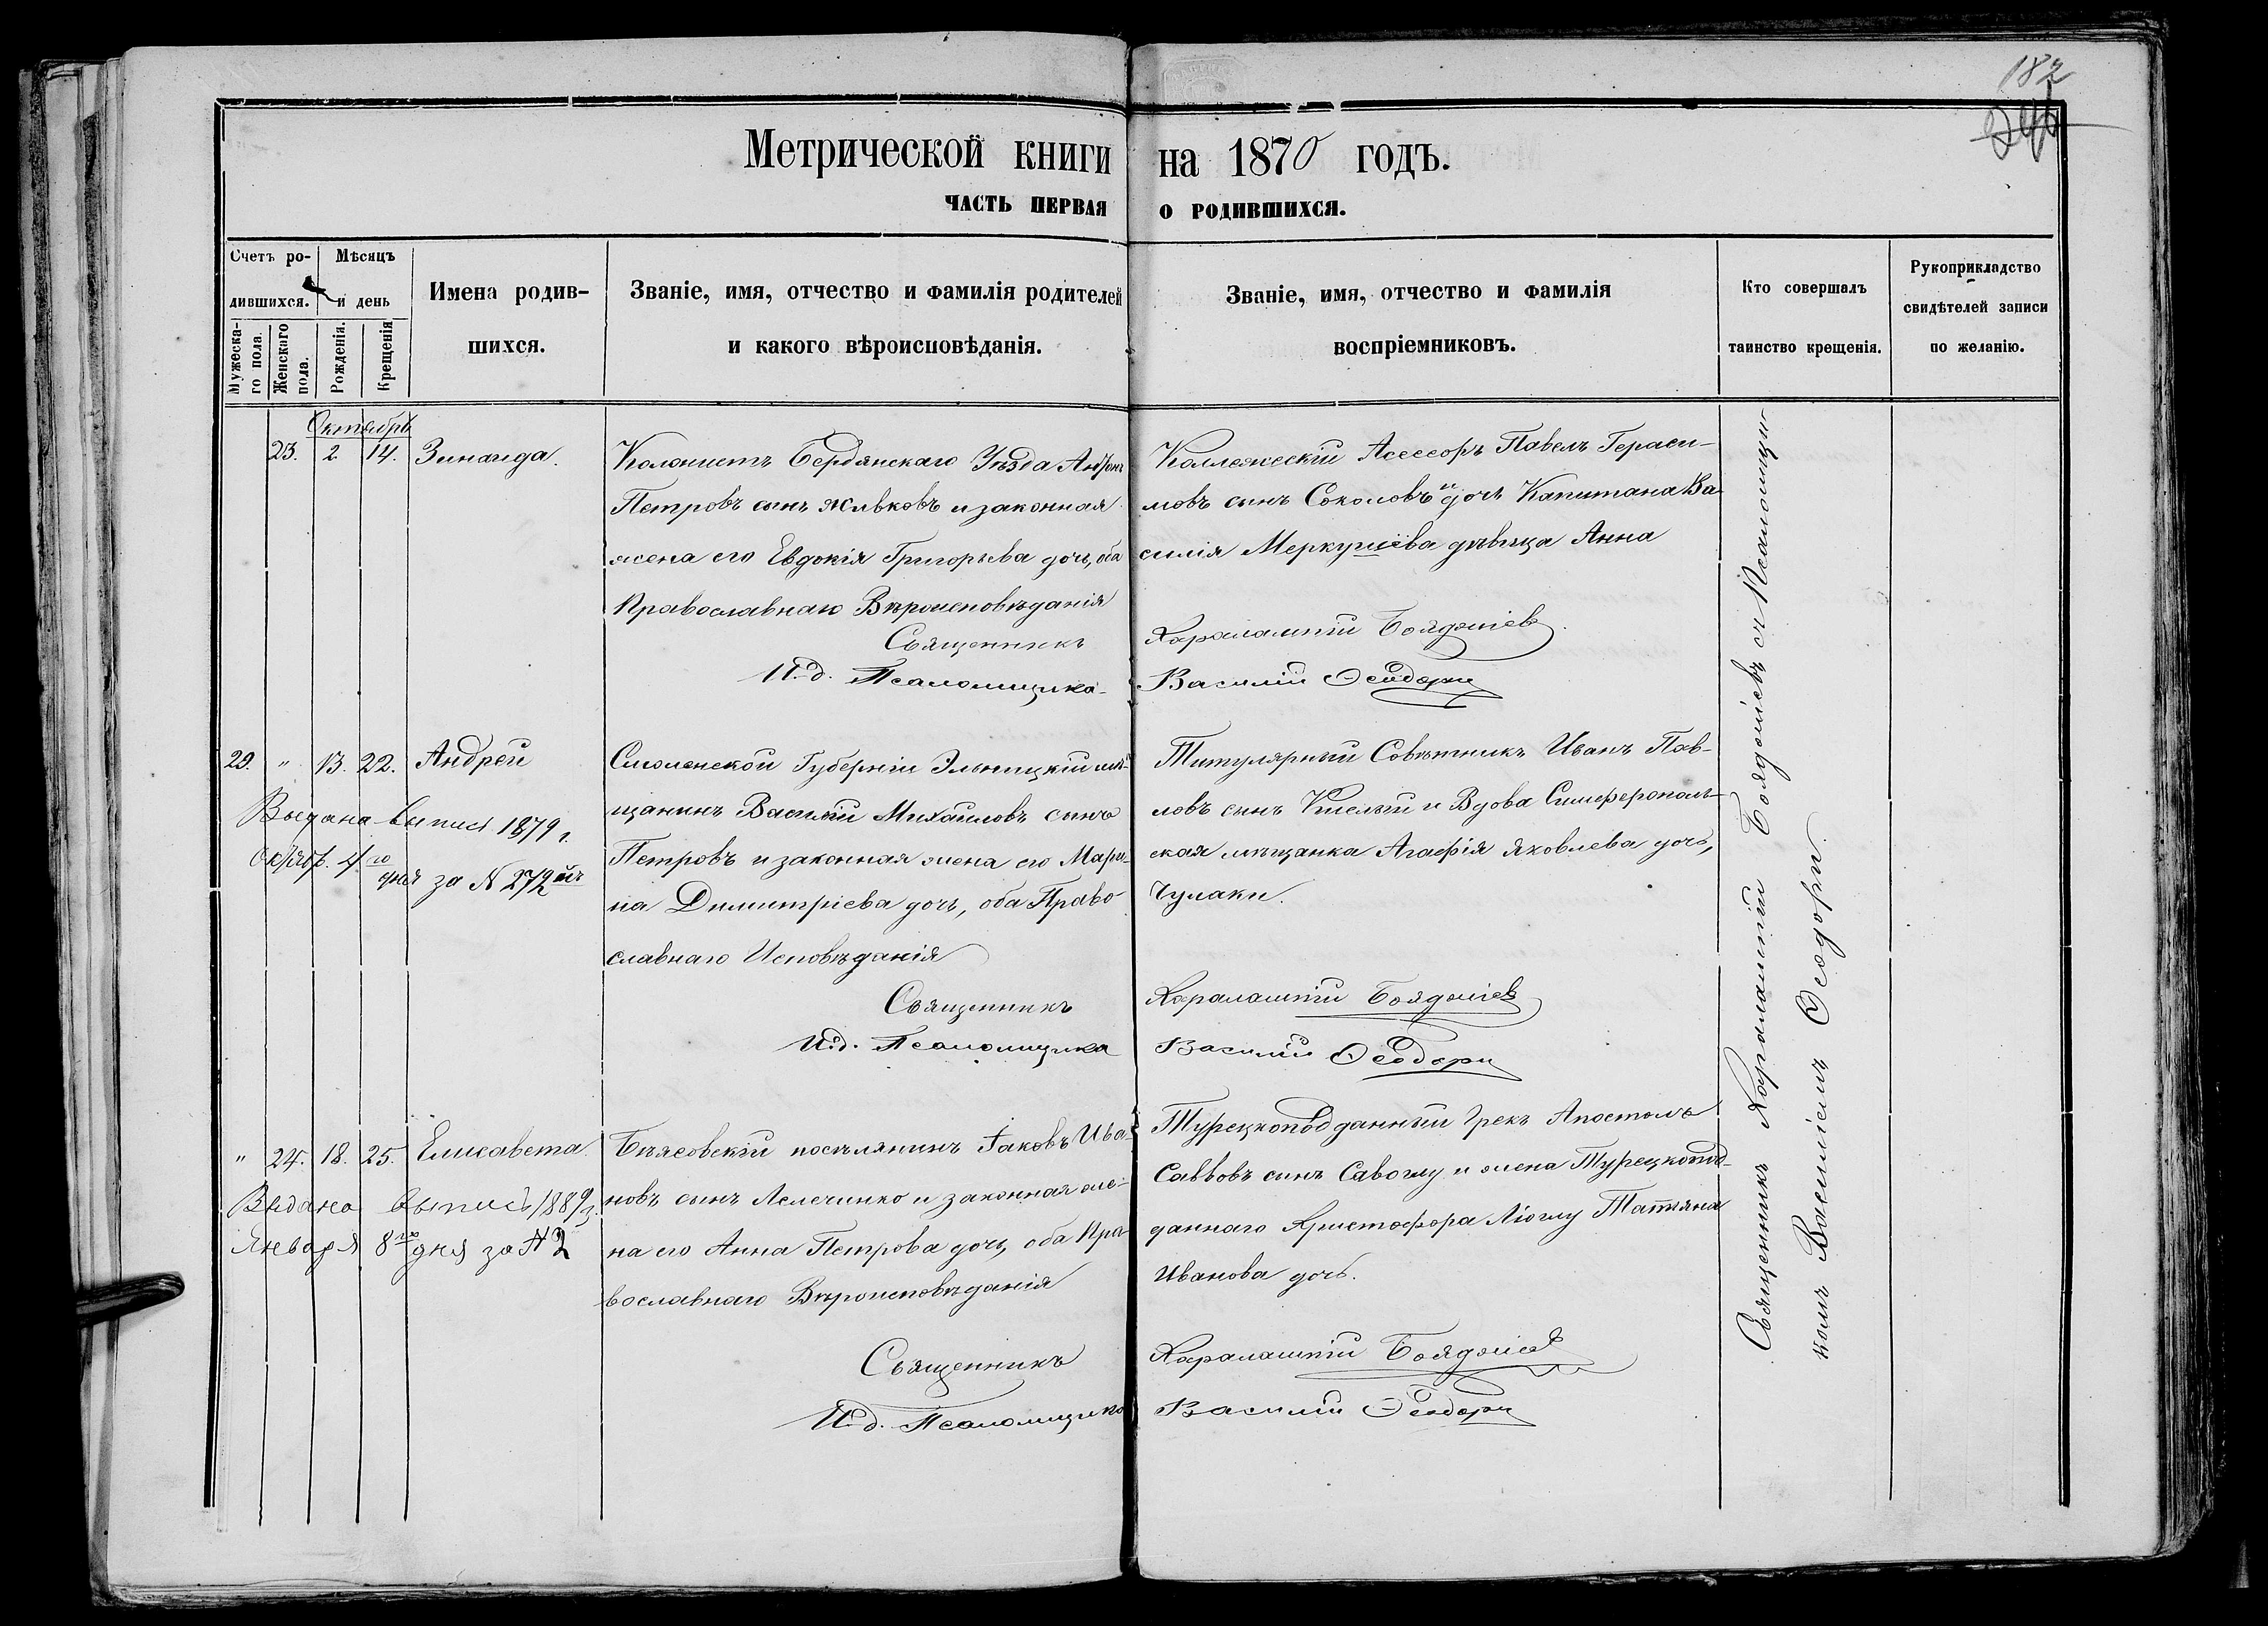 182
Метрической книги на 1870 годъ.
ЧАСТЬ ПЕРВАЯ О РОДИВШИХСЯ.
Счетъ ро-
дившихся.
Мужеска-
го пола.
Женскаго
пола.
Мѣсяцъ
и день
Рожденія.
Крещенія
Имена родив-
шихся.
Званіе, имя, отчество и фамилія родителей
и какого вѣроисповѣданія.
Званіе, имя, отчество и фамилія
воспріемниковъ.
Кто совершалъ
таинство крещенія.
Рукоприкладство
свидѣтелей записи
по желанію.
Октябрь
23. 2. 14. Зинаида.
Колонистъ Бердянскаго Уѣзда Антонъ
Петровъ сынъ Жлвковъ и законная
жена его Евдокія Григорьева дочь, оба
Православнаго Вѣроисповѣданія
Священникъ
И. д. Псаломщика
Коллежескій Асессоръ Павелъ Гераси-
мовъ сынъ Соколовъ и дочь Капитана Ва
силія Меркуліева дѣвица Анна
Харалампій Бояджіевъ.
Василій Ѳеодори
29. " 13. 22. Андрей
Выдана выпись 1879 г.
Октябр. 4 го
дня за N 272 мъ
Смоленской Губерніи Эльницкій мѣ-
щанинъ Василій Михаиловъ сынъ
Петровъ и законная жена его Мари-
на Димитріева дочь, оба Право
славнаго Исповѣданія
Священникъ
И. д. Псаломщика
Титулярный Совѣтникъ Иванъ Пав-
ловъ сынъ и Вдова Симферополь-
ская мѣщанка Агафія Яковлева дочь,
Чулаки.
Харалампій Бояджіевъ
Василій Ѳеодори
" 24. 18. 25. Елисавета.
Выдана выпись 1889 г.
Января 8 го дня за N 2
посѣлянинъ Іаковъ Ива-
новъ сынъ Лелечинко и законная же-
на его Анна Петрова дочь, оба Пра-
вославнаго Вѣроисповѣданія
Священникъ
И. д. Псаломщика
Турецкоподданный Грекъ Апостолъ
Саввовъ сынъ Савоглу и жена Турецкопод-
даннаго Христофора Ліоглу Татіяна
Иванова дочь.
Харалампій Бояджіевъ
Василій Ѳеодори
Священникъ Харалампій Бояджіевъ съ Псаломщи-
комъ Василіемъ Ѳеодори.